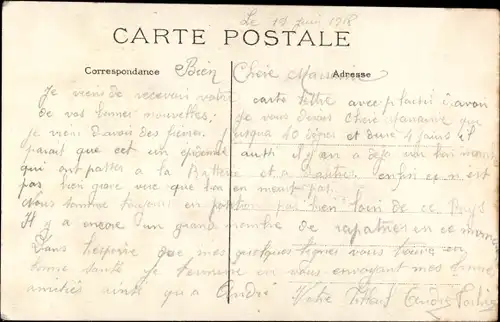 Le 19 Juin 1918
CARTE POSTALE
Correspondance
Adresse
Bien Chère Marraine
Je viens de recevoir votre carte lettre avec plaisir d'avoir
de vos bonnes nouvelles; je vous devais Chère Marraine que
je viens d'avoir des fièvres jusqua 40 degrés et dune 4 jours il
parait que cet un épidémie aussi il y an a déja
qui ont passer a la Batterie et a enfin ce n est
pas bien grave vue que l'on en meurt pas.
Nous somme toujours en position pas bien loin de ce Pays
Il y a encore un grand nombre de rapatriés en ce
Dans l'espoire que mes quelques lignes vous trouve en
bonne santé je termine en vous envoyant mes bonne
amitiés ainsi qu a André Votre André